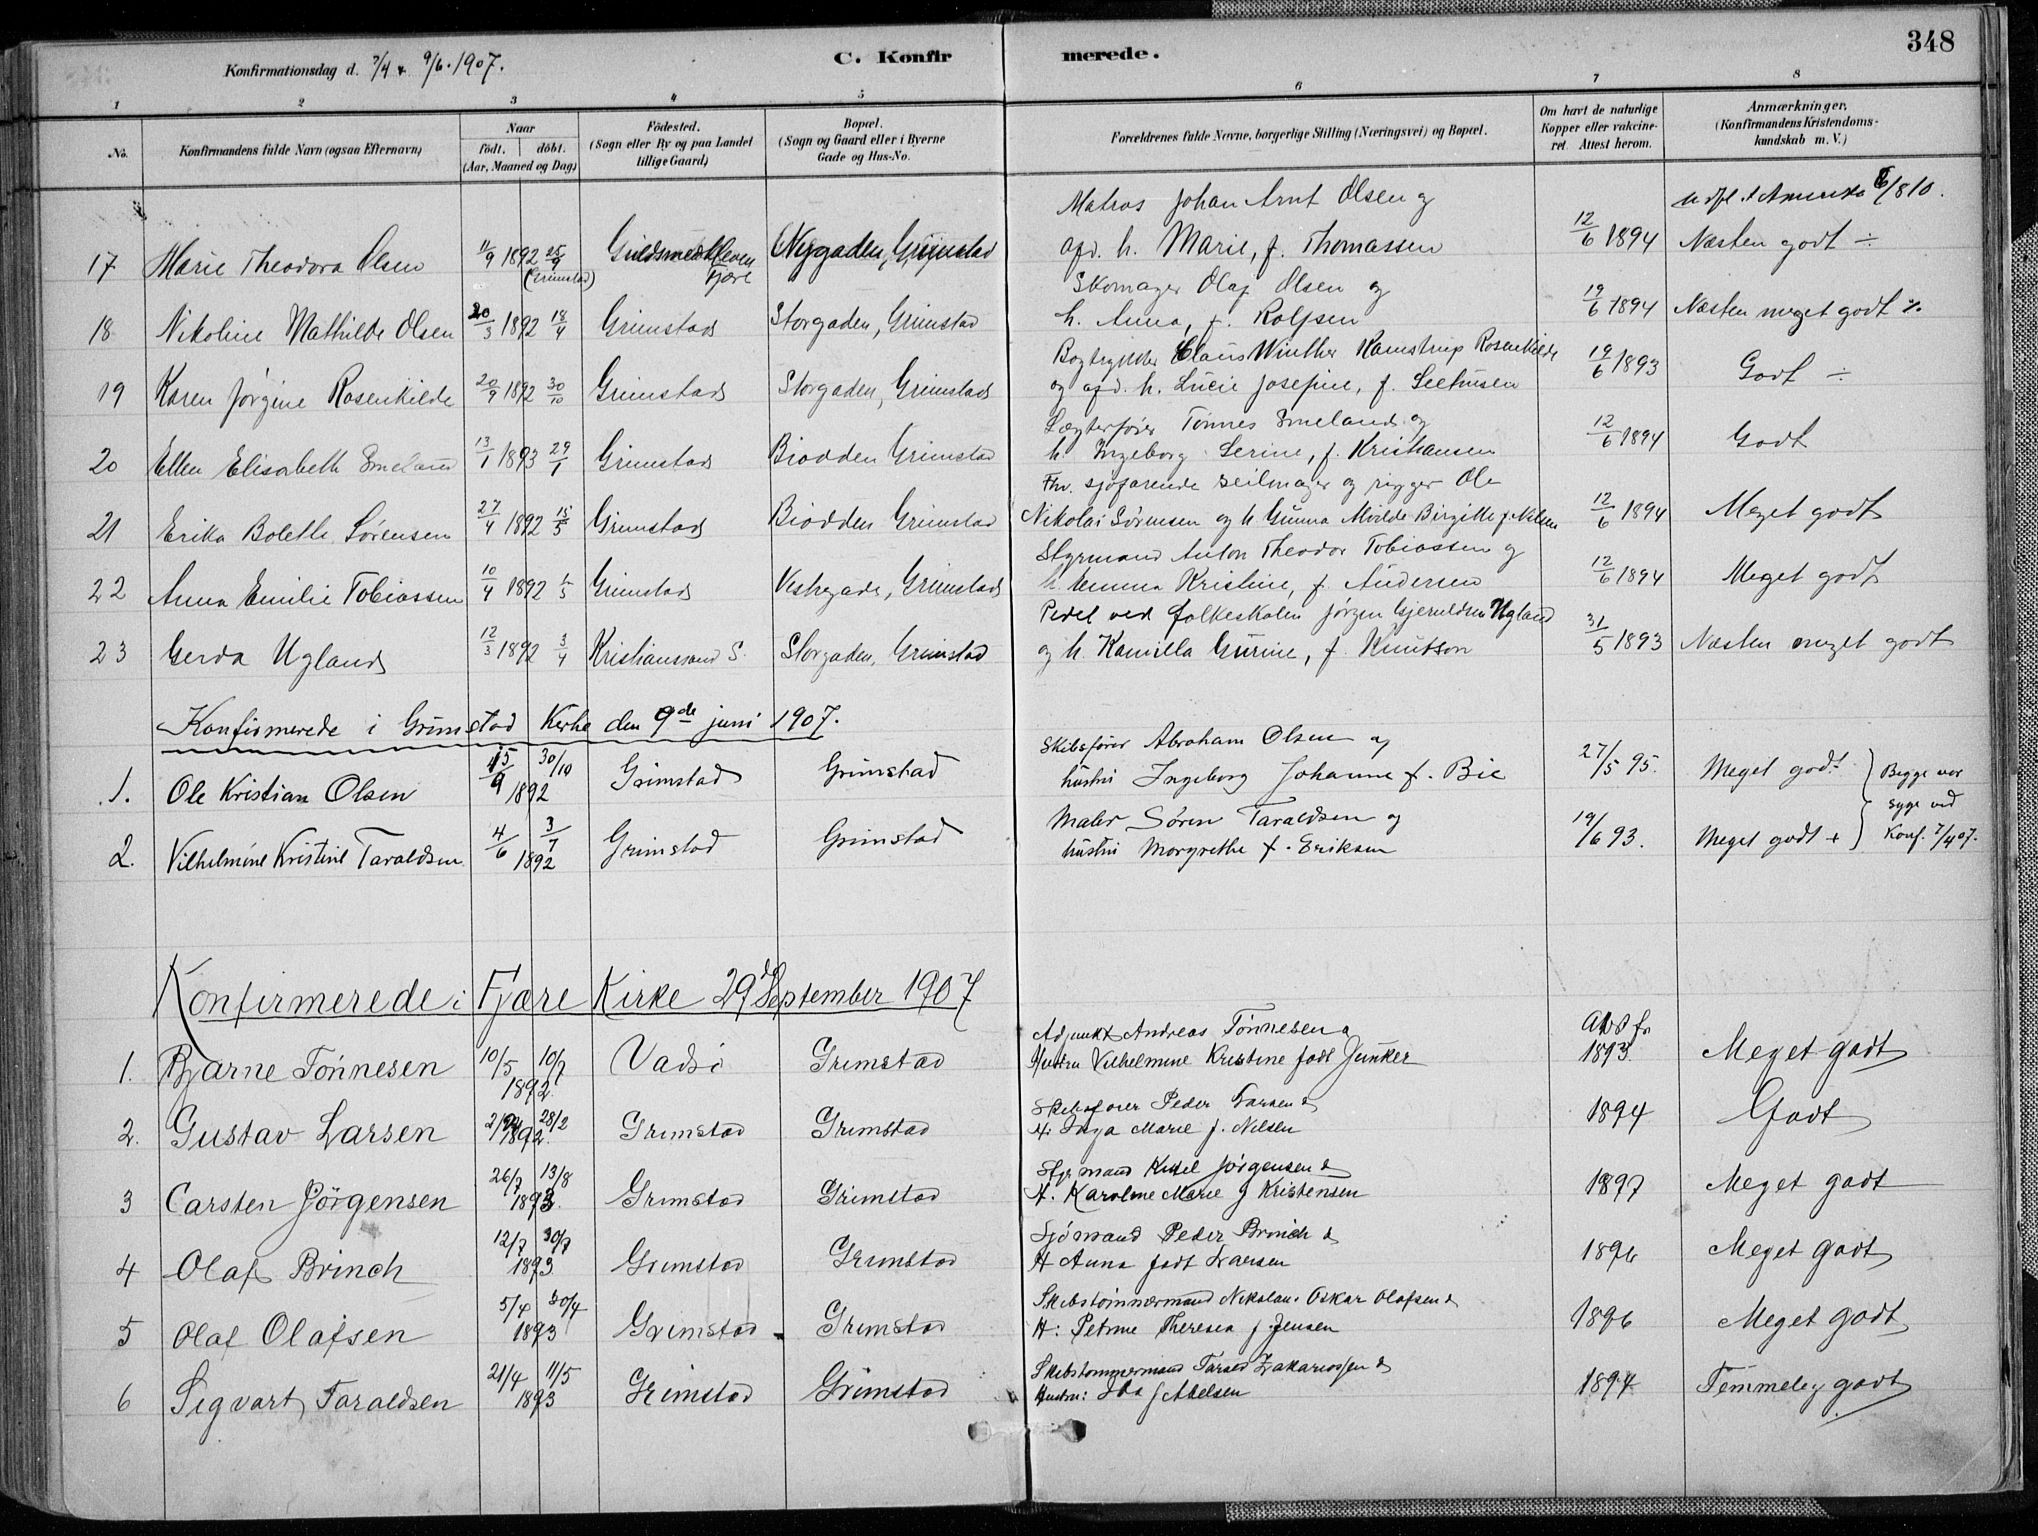 348
Konfirmationsdag d. 7/4 & 9/6. 1907.
C. Konfirmerede.
1 2 3 4 5 6 7 8
No.
Konfirmandens fulde Navn (ogsaa Efternavn)
Naar
födt. döbt.
(Aar, Maaned og Dag)
Födested.
(Sogn eller By og paa Landet
tillige Gaard)
Bopæl.
(Sogn og Gaard eller i Byerne
Gade og Hus-No.
Forældrenes fulde Navne, borgerlige Stilling (Næringsvei) og Bopæl.
Om havt de naturlige
Kopper eller vakcine-
ret. Attest herom.
Anmærkninger.
(Konfirmandens Kristendoms-
kundskab m. V.)
Matros Johan Arnt Olsen og
udfl. t. Amerika 6/8 10.
17 Marie Theodora Olsen 11/9 1892 25/9 (Grimstad) Fjære Nygaden, Grimstad afd. h. Marie, f. Thomassen 12/6 1894 Næsten godt ÷
Skomager Olaf Olsen og
18 Nikoline Mathilde Olsen 20/3 1892 18/4 Grimstad Storgaden, Grimstad h. Anna, f. Rolfsen 19/6 1894 Næsten meget godt ÷
Bogtrykker Claus Winther Kamstrup Rosenkilde
19 Karen Jørgine Rosenkilde 20/9 1892 30/10 Grimstad Storgaden, Grimstad og afd. h. Lucie Josefine, f. Seehusen 19/6 1893 Godt ÷
Lægterfører Tønnes Smeland og
20 Ellen Elisabeth Smeland 13/1 1893 29/1 Grimstad Biodden Grimstad h. Ingeborg Serine, f. Kristiansen 12/6 1894 Godt
Fhv. sjøfarende seilmager og rigger Ole
21 Erika Bolette Sørensen 27/4 1892 15/5 Grimstad Biodden Grimstad Nikolai Sørensen og h. Gunna Birgitte f. Nilsen 12/6 1894 Meget godt
Styrmand Anton Theodor Tobiassen og
22 Anna Emilie Tobiassen 10/4 1892 Grimstad Vestregade, Grimstad h. Emma Kristine, f. Andersen 12/6 1894 Meget godt
Pedel ved folkeskolen Jørgen Gjeruldsen Ugland
23 Gerda Ugland 12/3 1892 3/4 Kristianssand S. Storgaden, Grimstad og h. Kamilla Gurine, f. Knutson 31/5 1893 Næsten meget godt
Konfirmerede i Grimstad Kirke den 9de juni 1907.
Skibsfører Abraham Olsen og
1. Ole Kristian Olsen 15/9 30/10 1892 Grimstad Grimstad hustru Ingeborg Johanne f. Bie 27/5 95. Meget godt Begge var
syge ved
Maler Søren Taraldsen og
2. Vilhelmine Kristine Taraldsen 4/6 3/7 1892 Grimstad Grimstad hustru Margrethe f. Eriksen 19/6 93. Meget godt + Konf. 7/4 07.
Konfirmerede i Fjære Kirke 29d September 1907
Adjunkt Andreas Tønnesen &
1. Bjarne Tönnesen 10/5 10/7 1892 Vadsö Grimstad Hustru Vilhelmine Kristine født Junker 1893. Meget godt
Skibsfører Peder Larsen &
2. Gustav Larsen 28/2 1892. Grimstad Grimstad H: Inga Marie f. Nilsen 1894 Godt
Styrmand Kittel Jørgensen &
3 Carsten Jörgensen 26/7 13/8 1893. Grimstad Grimstad H. Karoline Marie f Kristensen 1897 Meget godt
Sjömand Peder Brinch &
4 Olaf Brinch 12/7 30/7 1893 Grimstad Grimstad H Anna født Larsen 1896 Meget godt
Skibstømmermand Nikolai Oskar Olafsen &
5 Olaf Olafsen 5/4 30/4 1893 Grimstad Grimstad H: Petrine Theresea f. Jensen 1896 Meget godt
Skibstømmermand Tarald Zakariassen &
6 Sigvart Taraldsen 21/4 11/5 1893 Grimstad Grimstad Hustru: Ida f Abelsen 1894 Temmelig godt